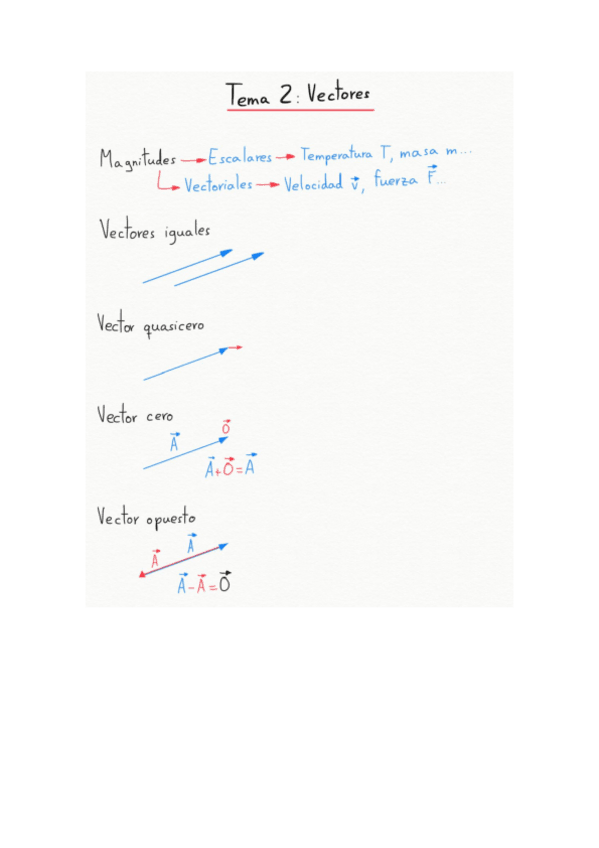 Tema 2: Vectores
Magnitudes → Escalares → Temperatura T, masa m...
→ Vectoriales → Velocidad v⃗, fuerza F⃗...
Vectores iguales
Vector quasicero
Vector cero
A⃗ 0⃗
A⃗+0⃗=A⃗
Vector opuesto
A⃗ A⃗
A⃗-A⃗=0⃗